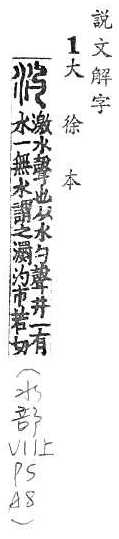 説文解字
1大徐本
汋激水聲也从水勺聲井一有
水一無水謂之瀱汋市若切
(水部
VII上
P5
A8)